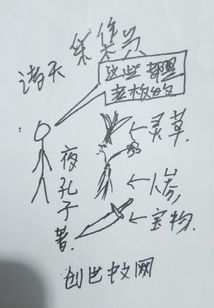 诸天采集员
这些都是
老板的
灵草
人参
宝物
夜孔子著
创世中文网